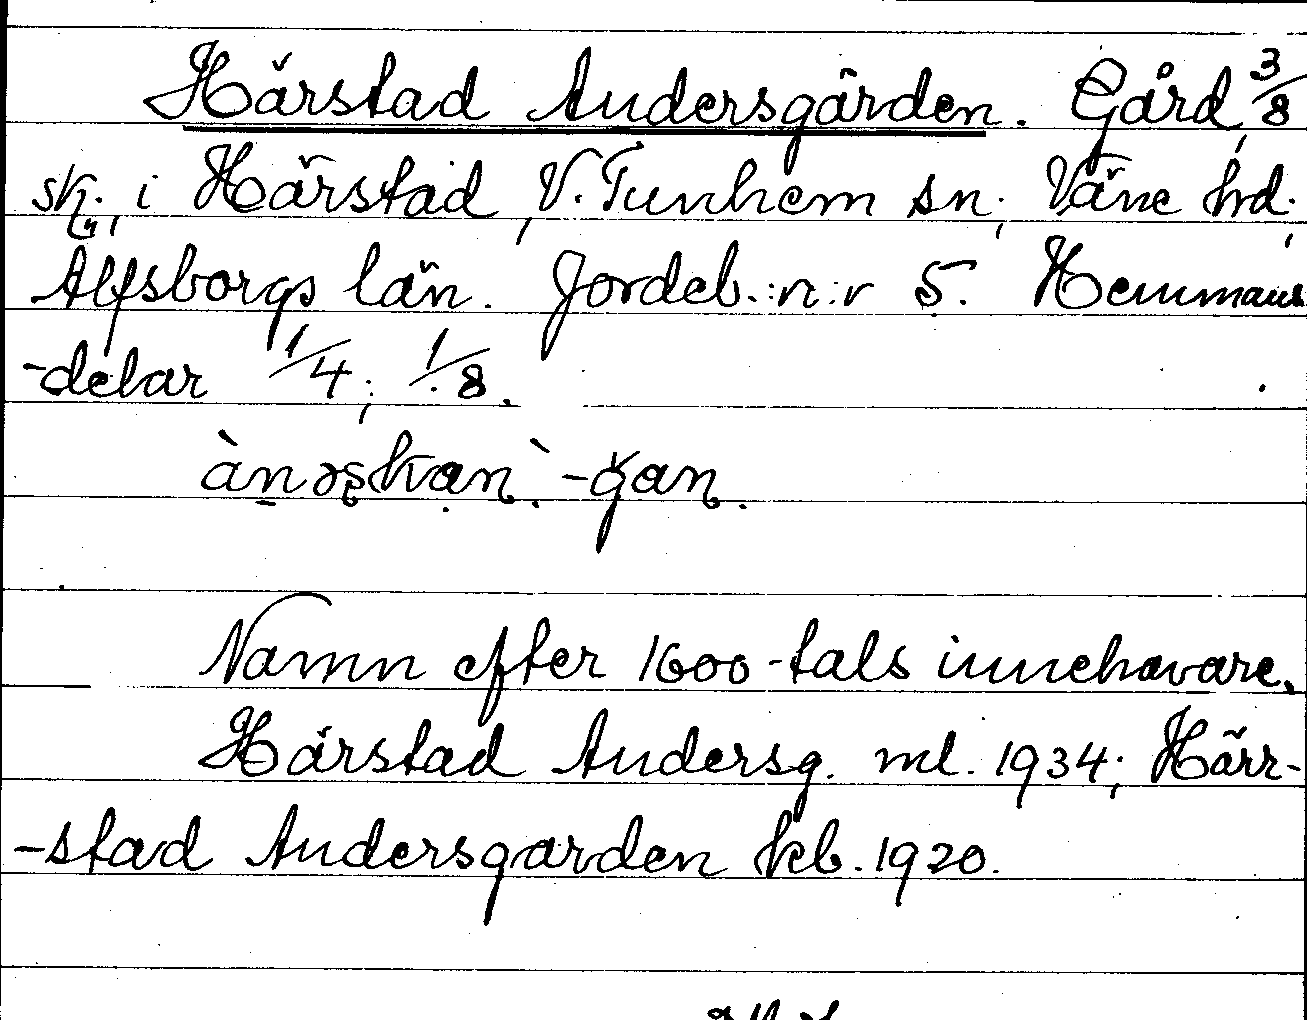 Härstad Andersgården. Gård, 3/8
sk., i Härstad, V. Tunhem sn, Väne hd.,
Älfsborgs län. Jordeb.:n:r 5. Hemmans
-delar 1/4; 1/8.
-gan.
Namn efter 1600-tals innehavare.
Härstad Andersg. ml. 1934; Härr-
-stad Andersgarden kb. 1920.